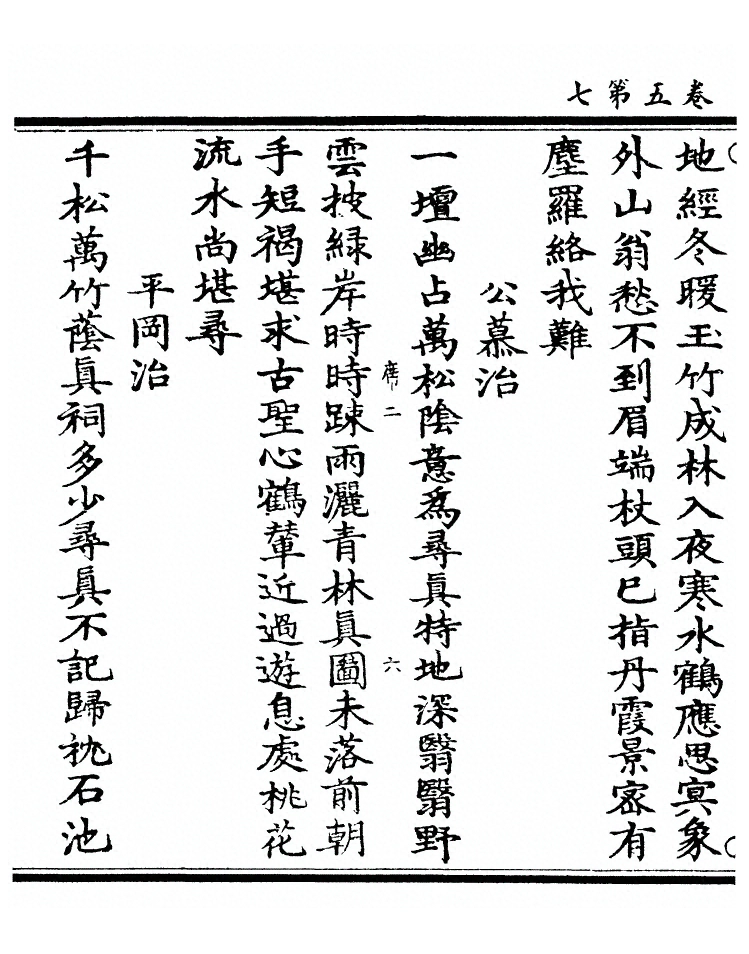 卷五第七
地經冬暖玉竹成林入夜寒水鶴應思冥象
外山翁愁不到眉端杖頭已指丹霞景宻有
塵羅絡我難
公慕治
一壇幽占萬松陰意爲尋真特地深翳翳野
雲披緑岸時時踈雨灑青林真圖未落前朝
席二
六
手短褐堪求古聖心鶴輦近過遊息處桃花
流水尚堪尋
平岡治
千松萬竹蔭真祠多少尋真不記歸枕石池